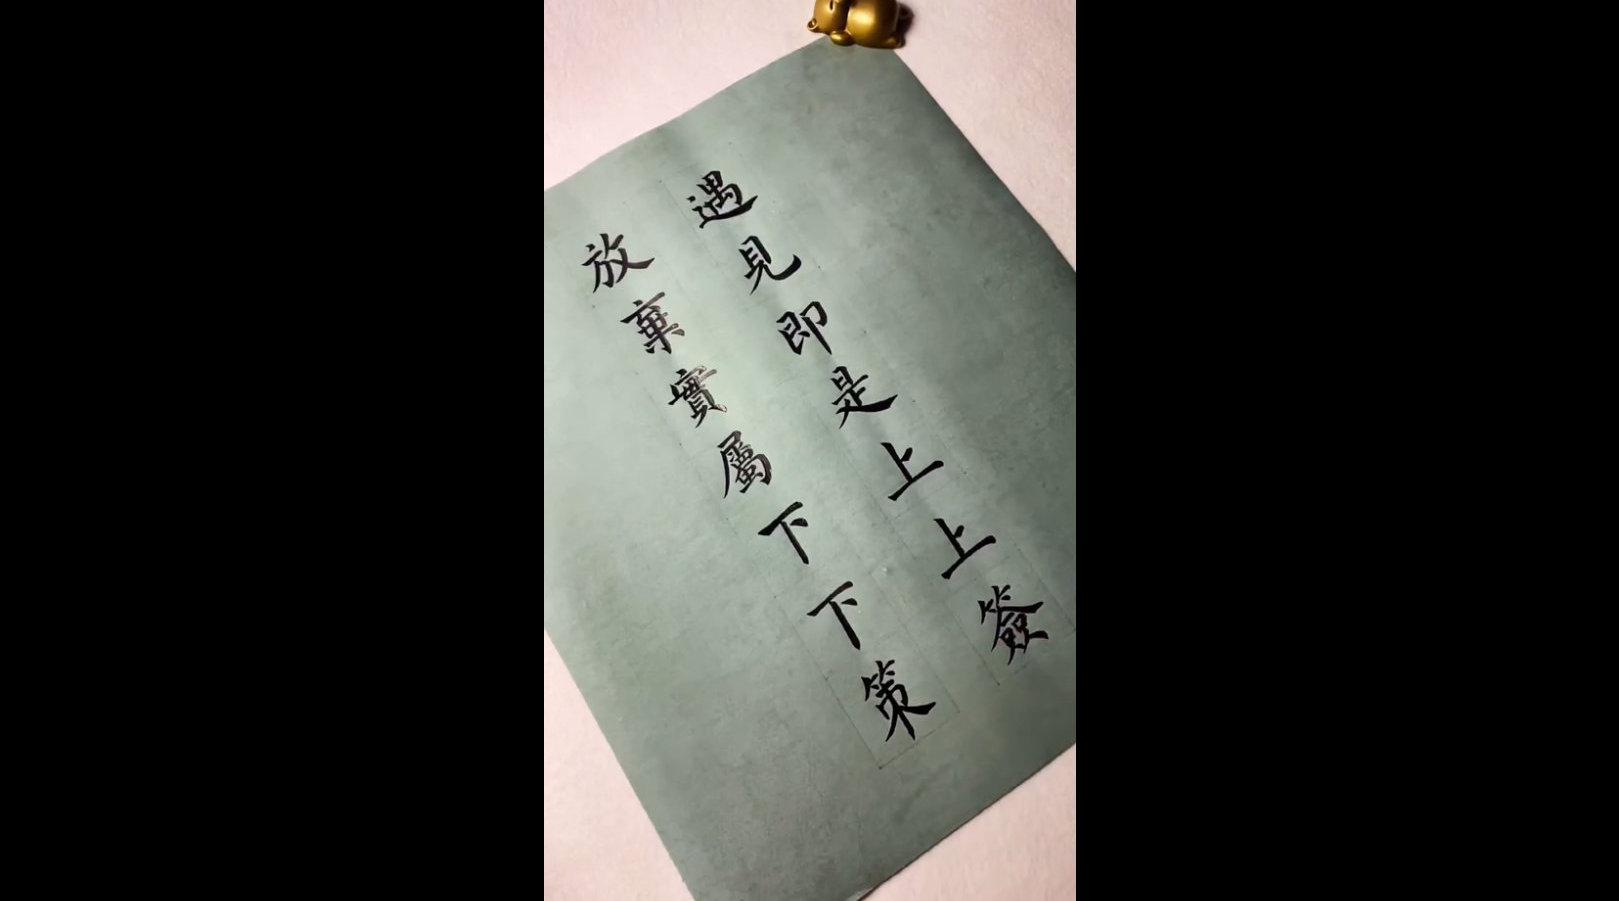 遇見即是上上簽
放棄實屬下下策